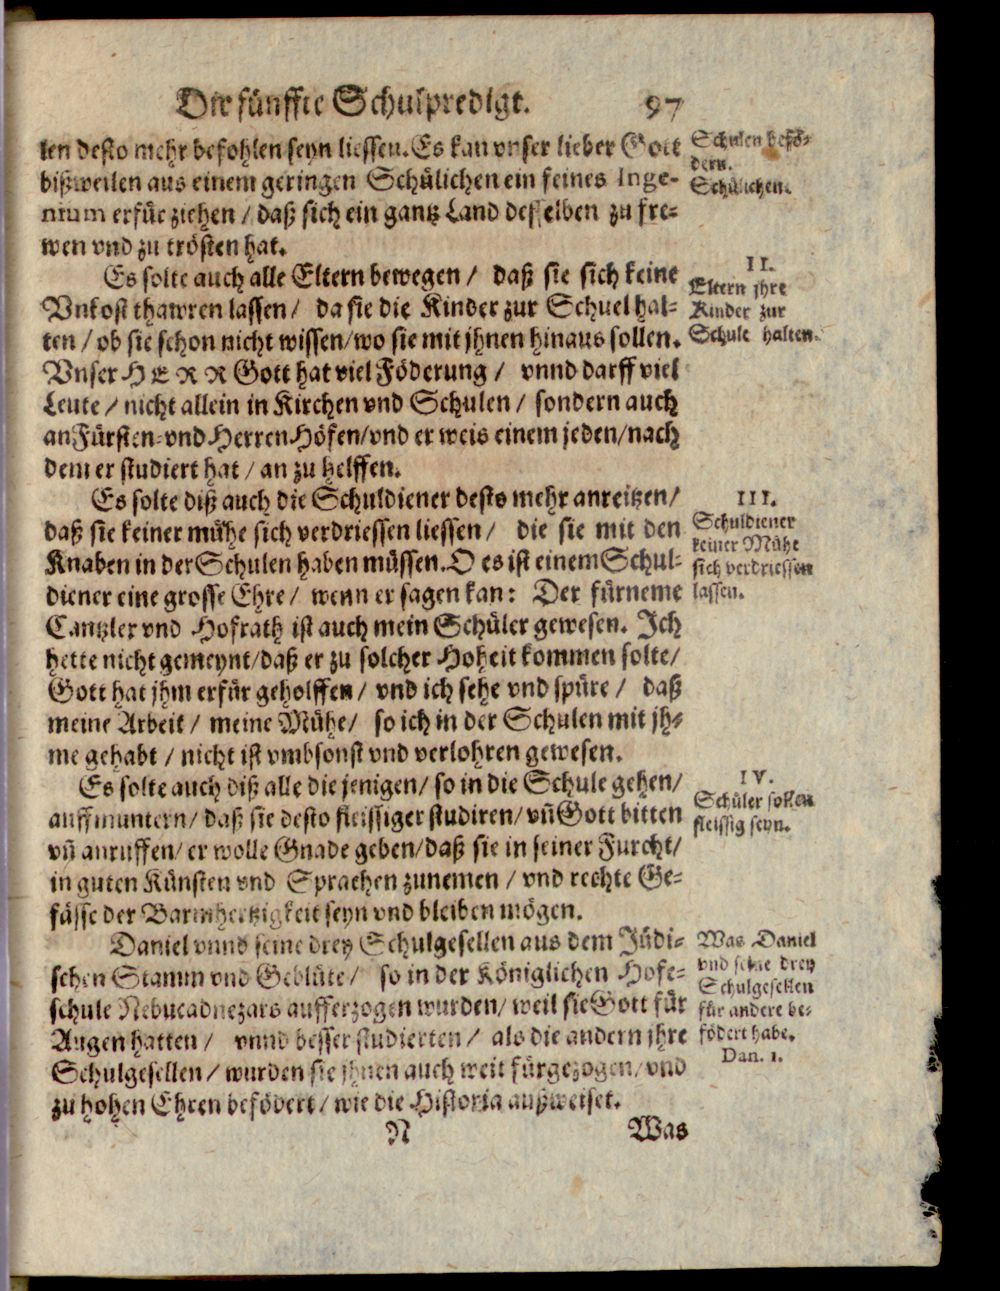 Die fünffte Schulpredigt. 97
len desto mehr befohlen seyn liessen. Es kan vnser lieber Gott
bißweilen aus einem geringen Schülichen ein feines Inge-
nium erfür ziehen / daß sich ein gantz Land desselben zu fre-
wen vnd zu trösten hat.
Schulen befö-
dern.
Schülichen.
Es solte auch alle Eltern bewegen / daß sie sich keine
Vnkost thawren lassen / da sie die Kinder zur Schuel hal-
ten / ob sie schon nicht wissen / wo sie mit jhnen hinaus sollen.
Vnser HERR Gott hat viel Föderung / vnnd darff viel
Leute / nicht allein in Kirchen vnd Schulen / sondern auch
an Fürsten- vnd Herren Höfen / vnd er weis einem jeden / nach
dem er studiert hat / an zu helffen.
II.
Eltern jhre
Kinder zur
Schule halten.
Es solte diß auch die Schuldiener desto mehr anreitzen /
daß sie keiner mühe sich verdriessen liessen / die sie mit den
Knaben in der Schulen haben müssen. O es ist einem Schul-
diener eine grosse Ehre / wenn er sagen kan: Der fürneme
Cantzler vnd Hofrath ist auch mein Schüler gewesen. Ich
hette nicht gemeynt / daß er zu solcher Hoheit kommen solte /
Gott hat jhm erfür geholffen / vnd ich sehe vnd spüre / daß
meine Arbeit / meine Mühe / so ich in der Schulen mit jh-
me gehabt / nicht ist vmbsonst vnd verlohren gewesen.
III.
Schuldiener
keiner Mühe
sich verdriessen
lassen.
Es solte auch diß alle die jenigen / so in die Schule gehen /
auffmuntern / daß sie desto fleissiger studiren / vñ Gott bitten
vñ anruffen / er wolle Gnade geben / daß sie in seiner Furcht /
in guten Künsten vnd Sprachen zunemen / vnd rechte Ge-
fässe der Barmhertzigkeit seyn vnd bleiben mögen.
IV.
Schüler sollen
fleissig seyn.
Daniel vnnd seine drey Schulgesellen aus dem Jüdi-
schen Stamm vnd Geblüte / so in der Königlichen Hofe-
schule Nebucadnezars aufferzogen wurden / weil sie Gott für
Augen hatten / vnnd besser studierten / als die andern jhre
Schulgesellen / wurden sie jhnen auch weit fürgezogen / vnd
zu hohen Ehren befödert / wie die Historia außweiset.
Was Daniel
vnd seine drey
Schulgesellen
für andere be-
födert habe.
Dan. 1.
N Was